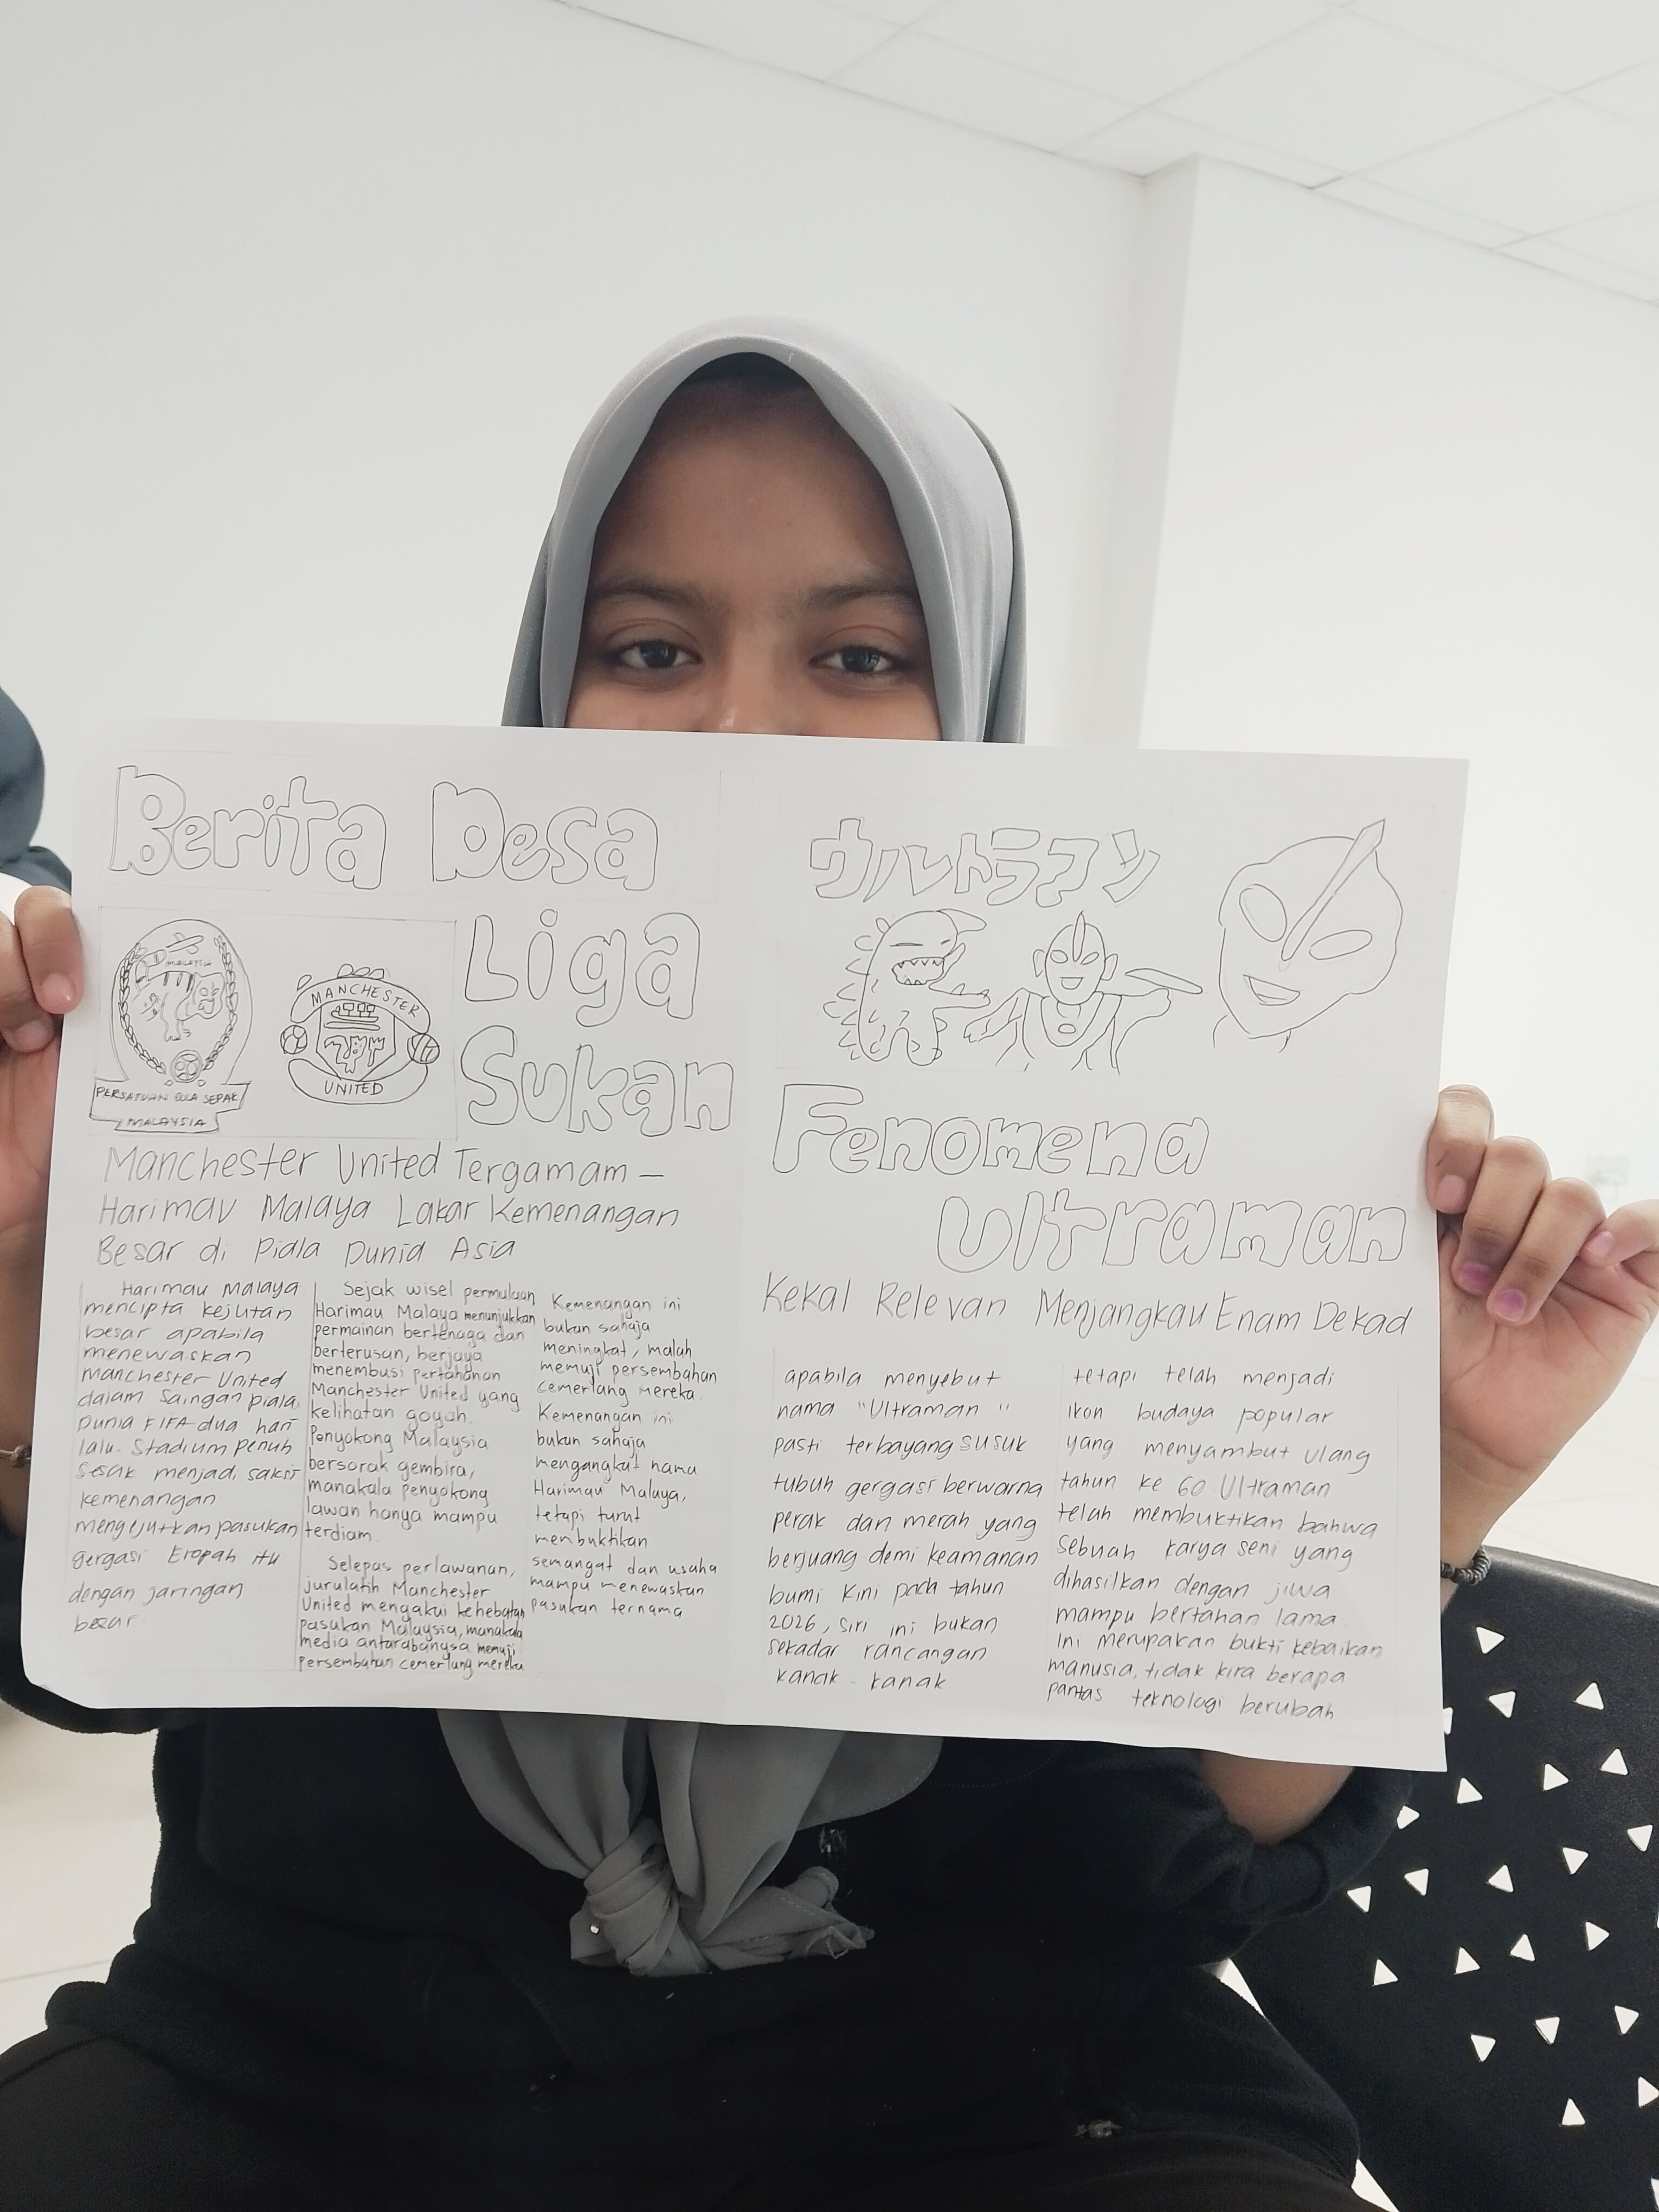 Berita Desa
MALAYSIA
PERSATUAN BOLA SEPAK
MALAYSIA
MANCHESTER
UNITED
Liga
Sukan
Manchester United Tergamam –
Harimau Malaya Lakar Kemenangan
Besar di Piala Dunia Asia
Harimau Malaya
mencipta kejutan
besar apabila
menewaskan
Manchester United
dalam Saingan piala
Dunia FIFA dua hari
lalu. Stadium penuh
sesak menjadi saksi
kemenangan
mengejutkan pasukan
gergasi Eropah itu
dengan jaringan
besar
Sejak wisel permulaan
Harimau Malaya menunjukkan
permainan bertenaga dan
berterusan, berjaya
menembusi pertahanan
Manchester United yang
kelihatan goyah.
Penyokong Malaysia
bersorak gembira,
manakala penyokong
lawan hanya mampu
terdiam.
Selepas perlawanan,
jurulatih Manchester
United mengakui kehebatan
pasukan Malaysia, manakala
media antarabangsa memuji
persembahan cemerlang mereka
Kemenangan ini
bukan sahaja
meningkat, malah
memuji persembahan
cemerlang mereka.
Kemenangan ini
bukan sahaja
mengangkat nama
Harimau Malaya,
tetapi turut
membuktikan
semangat dan usaha
mampu menewaskan
pasukan ternama
ウルトラマン
Fenomena
Ultraman
Kekal Relevan Menjangkau Enam Dekad
apabila menyebut
nama "Ultraman"
pasti terbayang susuk
tubuh gergasi berwarna
perak dan merah yang
berjuang demi keamanan
bumi kini pada tahun
2026, siri ini bukan
sekadar rancangan
kanak - kanak
tetapi telah menjadi
ikon budaya popular
yang menyambut ulang
tahun ke 60 Ultraman
telah membuktikan bahwa
sebuah karya seni yang
dihasilkan dengan jiwa
mampu bertahan lama.
Ini merupakan bukti kebaikan
manusia, tidak kira berapa
pantas teknologi berubah